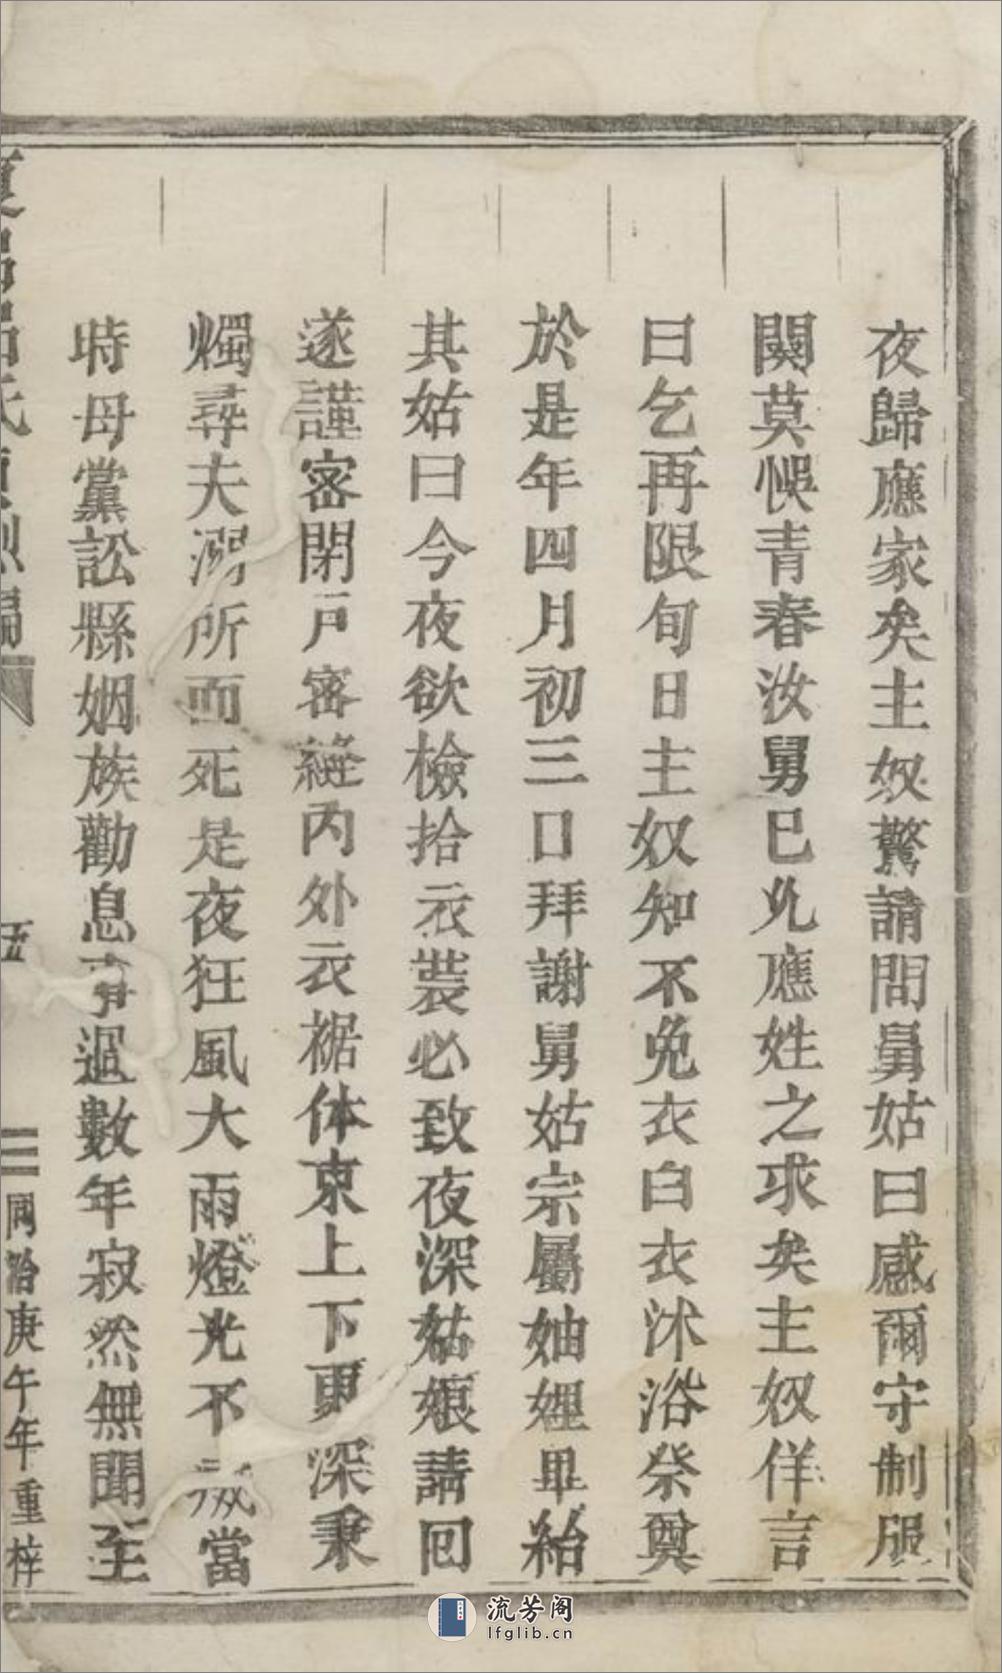 夜歸應家矣主奴驚請問舅姑曰感爾守制服
闋莫悞青春汝舅已允應姓之求矣主奴佯言
曰乞再限旬日主奴知不免衣白衣沐浴祭奠
於是年四月初三日拜謝舅姑宗屬妯娌畢紿
其姑曰今夜欲檢拾衣裝必致夜深姑娘請回
遂謹密閉戶密縫內外衣裾体束上下更深秉
燭尋夫溺所而死是夜狂風大雨燈光不滅當
時母黨訟縣姻族勸息事過數年寂然無聞至
五
同治庚午年重梓
流芳阁
lfglib.cn